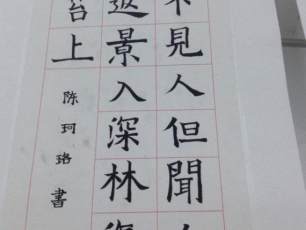 不見人但聞
返景入深林復
苔上
陈珂珞書